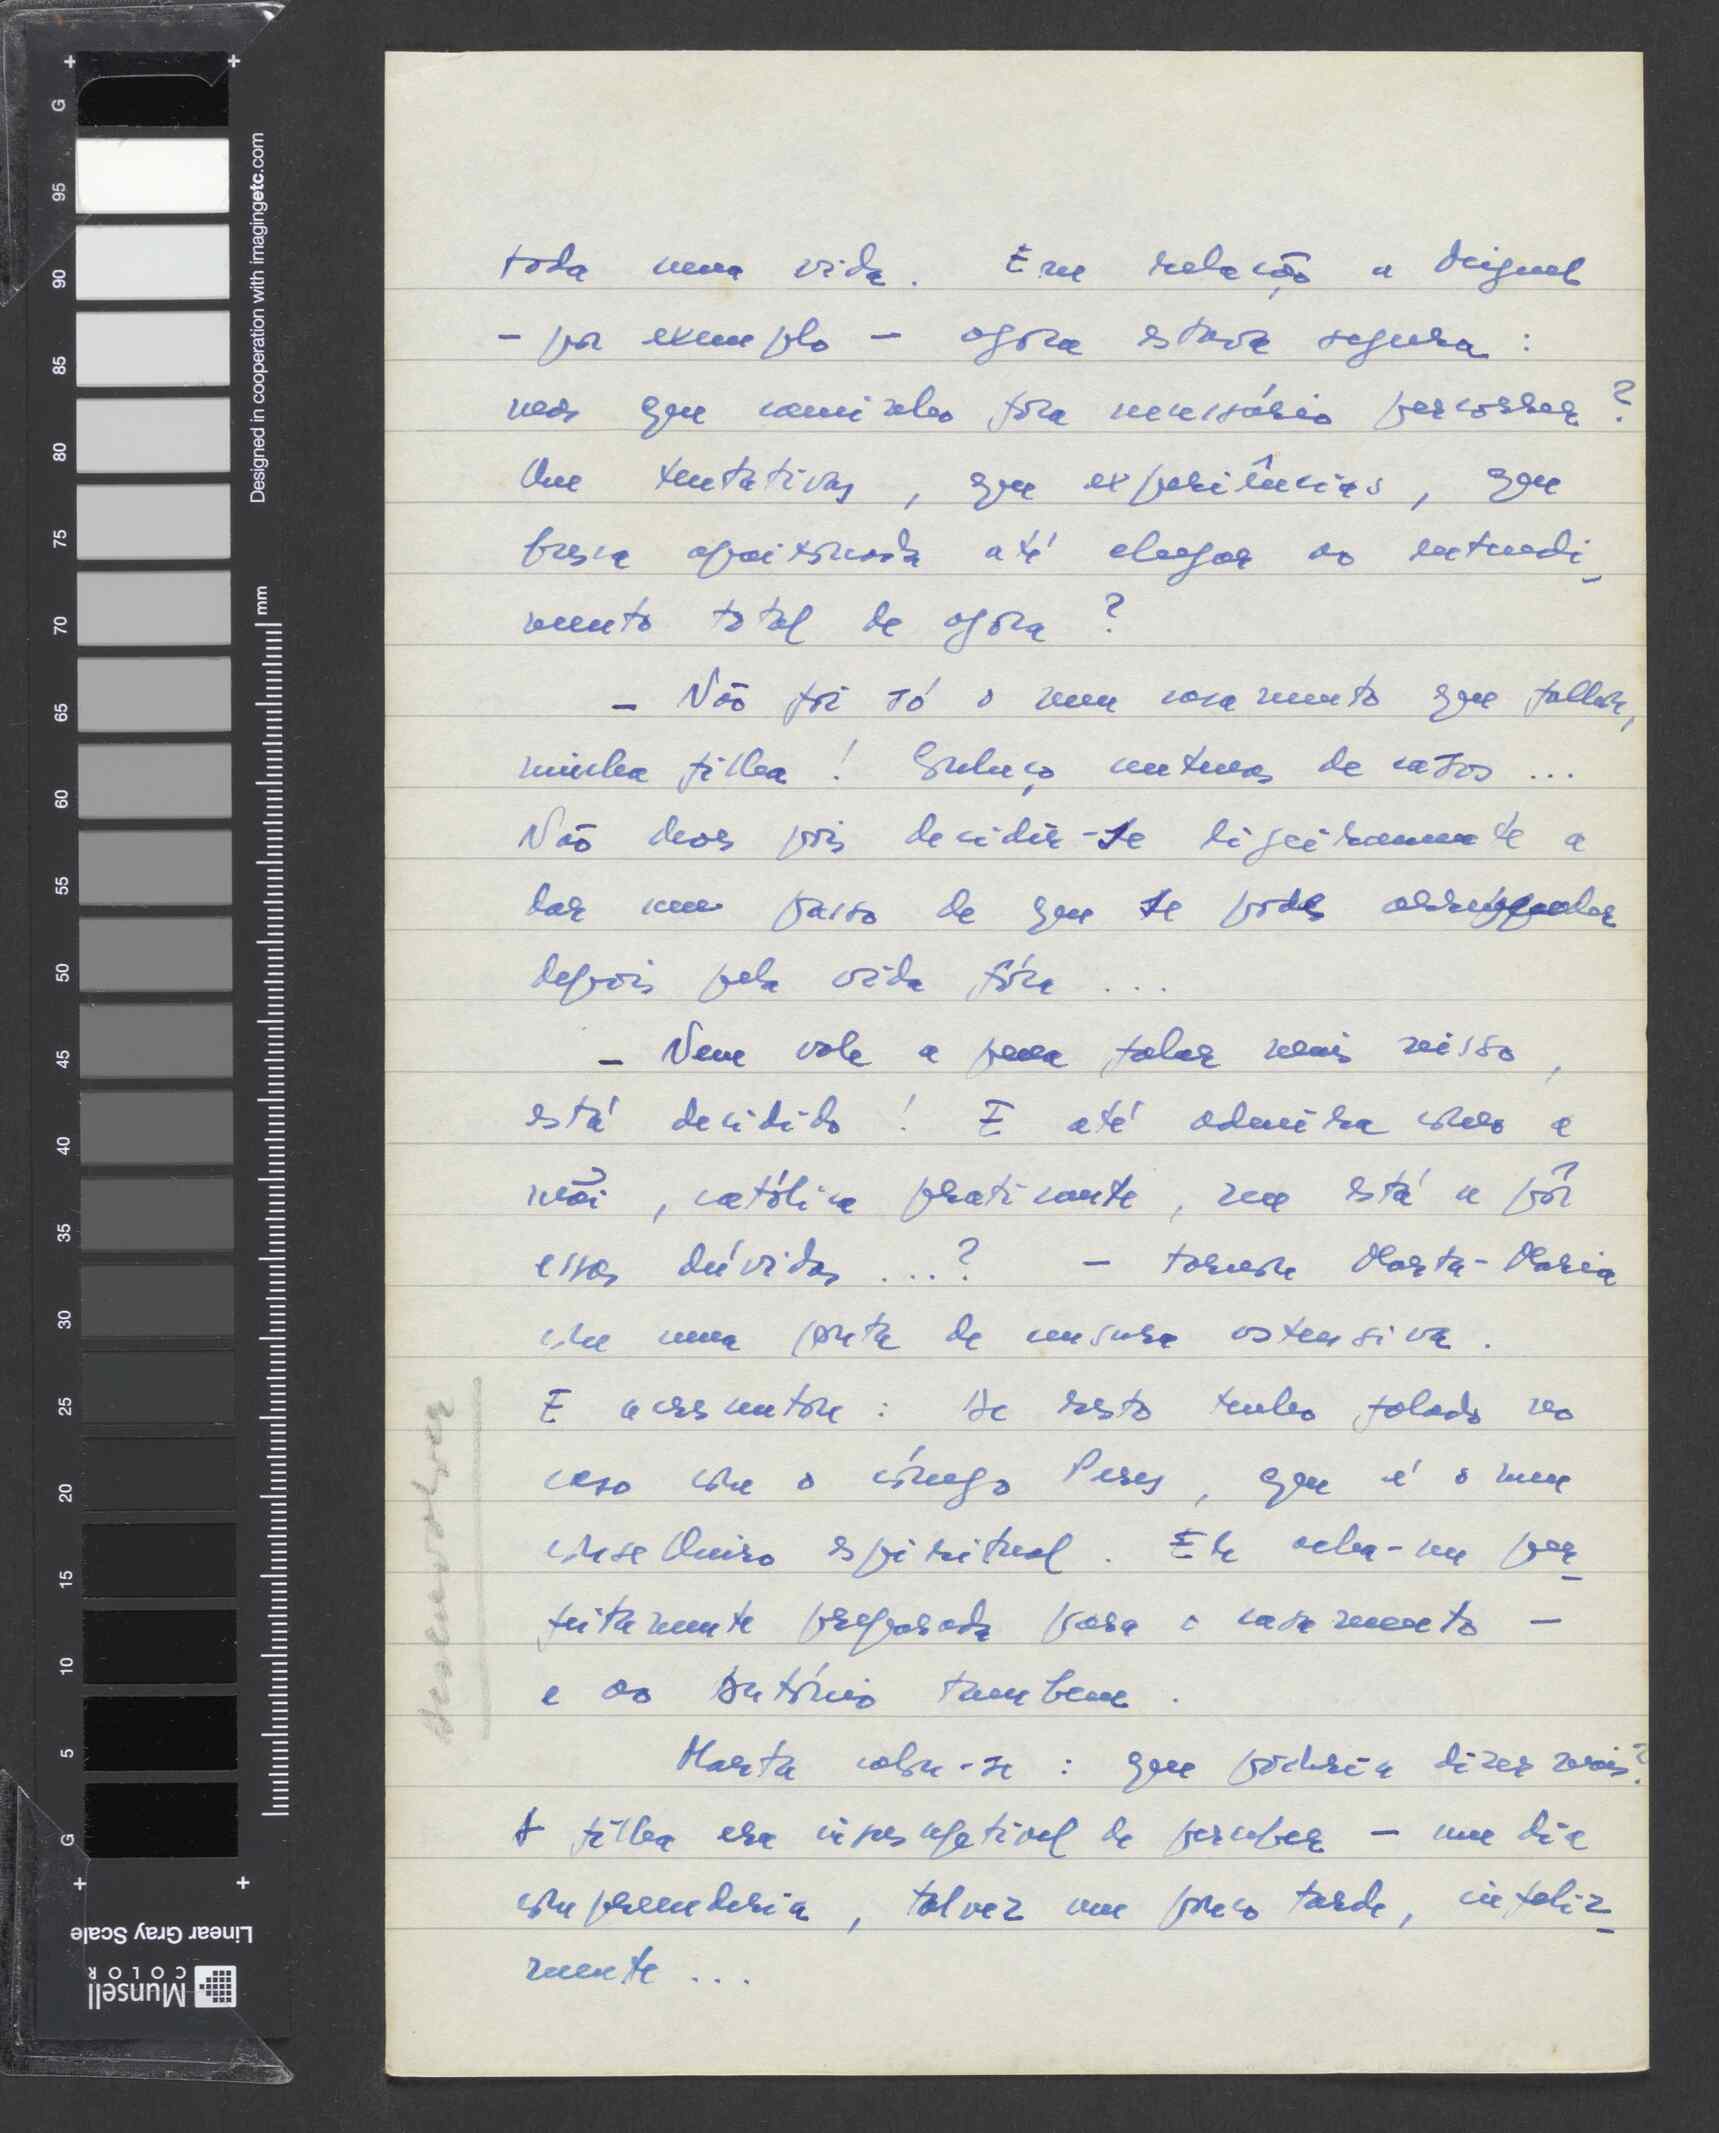 toda uma vida. Em relação a Miguel
- por exemplo - agora estava segura:
mas que caminho fora necessário percorrer?
Que tentativas, que experiências, que
busca apaixonada até chegar ao entendi-
mento total de agora?
- Não foi só o meu casamento que falhou,
minha filha! Conheço centenas de casos...
Não deves pois decidir-te ligeiramente a
dar um passo de que te podes arrepender
depois pela vida fóra...
- Nem vale a pena falar mais nisso,
está decidido! E até admira como a
mãi, católica praticante, me está a pôr
essas dúvidas...? - tornou Marta-Maria
com uma ponta de censura ostensiva.
E acrescentou: De resto tenho falado no
caso com o cónego Peres, que é o meu
conselheiro espiritual. Ele acha-me per-
feitamente preparada para o casamento -
e ao António tambem.
Marta calou-se: que poderia dizer mais?
A filha era insusceptivel de perceber - um dia
compreenderia, talvez um pouco tarde, infeliz-
mente...
desenvolver
G
95
90
85
80
75
70
65
60
55
50
45
40
35
30
25
20
15
10
5
G
Designed in cooperation with imagingetc.com
mm
Linear Gray Scale
Munsell
COLOR